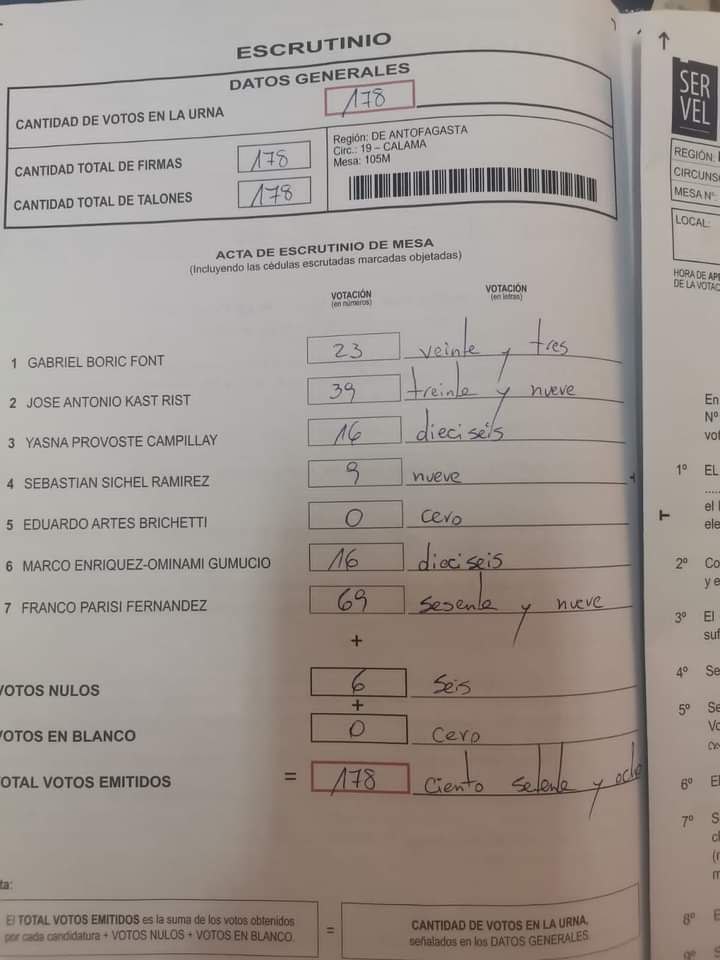 ESCRUTINIO
DATOS GENERALES
CANTIDAD DE VOTOS EN LA URNA 178
CANTIDAD TOTAL DE FIRMAS 178
CANTIDAD TOTAL DE TALONES 178
Región: DE ANTOFAGASTA
Circ.: 19 – CALAMA
Mesa: 105M
ACTA DE ESCRUTINIO DE MESA
(Incluyendo las cédulas escrutadas marcadas objetadas)
VOTACIÓN VOTACIÓN
(en números) (en letras)
1 GABRIEL BORIC FONT 23 veinte y tres
2 JOSE ANTONIO KAST RIST 39 treinta y nueve
3 YASNA PROVOSTE CAMPILLAY 16 dieciséis
4 SEBASTIAN SICHEL RAMIREZ 9 nueve
5 EDUARDO ARTES BRICHETTI 0 cero
6 MARCO ENRIQUEZ-OMINAMI GUMUCIO 16 dieciseis
7 FRANCO PARISI FERNANDEZ 69 sesenta y nueve
+
VOTOS NULOS 6 Seis
+
VOTOS EN BLANCO 0 Cero
TOTAL VOTOS EMITIDOS = 178 Ciento setenta y ocho
El TOTAL VOTOS EMITIDOS es la suma de los votos obtenidos
por cada candidatura + VOTOS NULOS + VOTOS EN BLANCO.
=
CANTIDAD DE VOTOS EN LA URNA,
señalados en los DATOS GENERALES.
SER
VEL
REGIÓN:
CIRCUNSC
MESA Nº:
LOCAL:
HORA DE APE
DE LA VOTAC
En
Nº
vot
1º EL
el
ele
2º Co
y e
3º El
suf
4º Se
5º Se
Vo
6º El
7º S
8º E
9º S